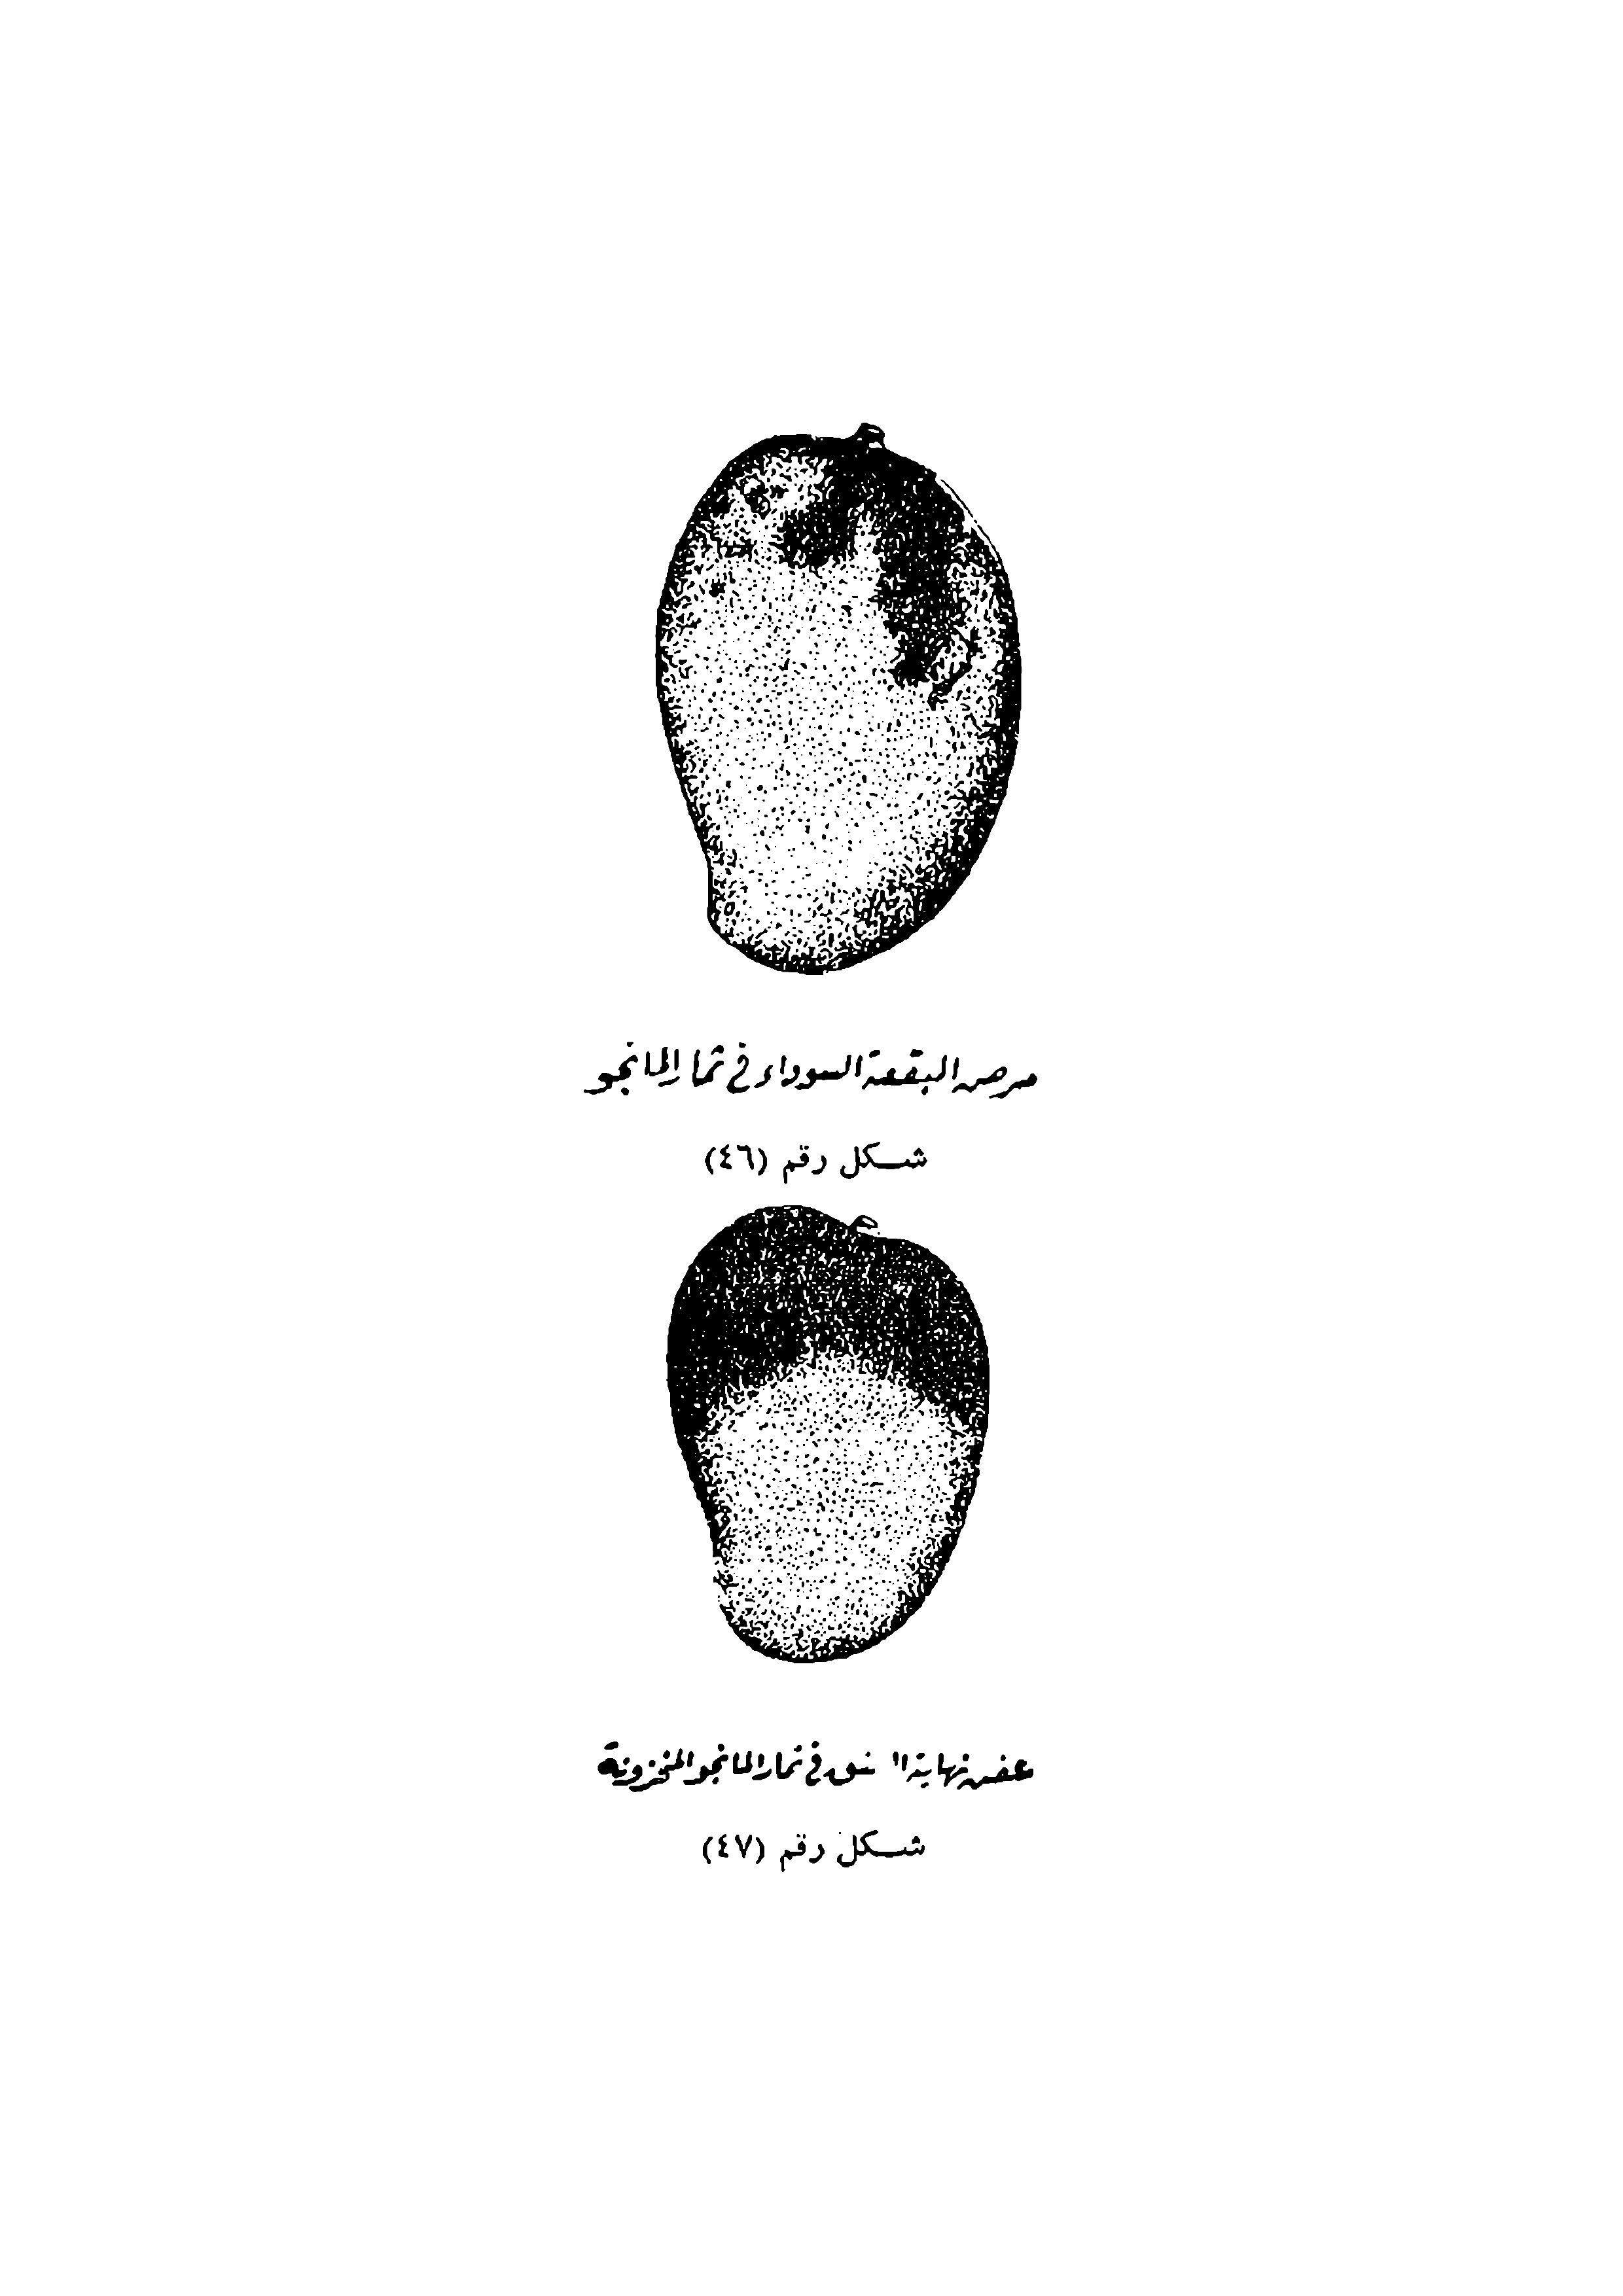 مرض البقعة السوداء في ثمار المانجو
شكل رقم (٤٦)
عفن نهاية في ثمار المانجو المخزونة
شكل رقم (٤٧)